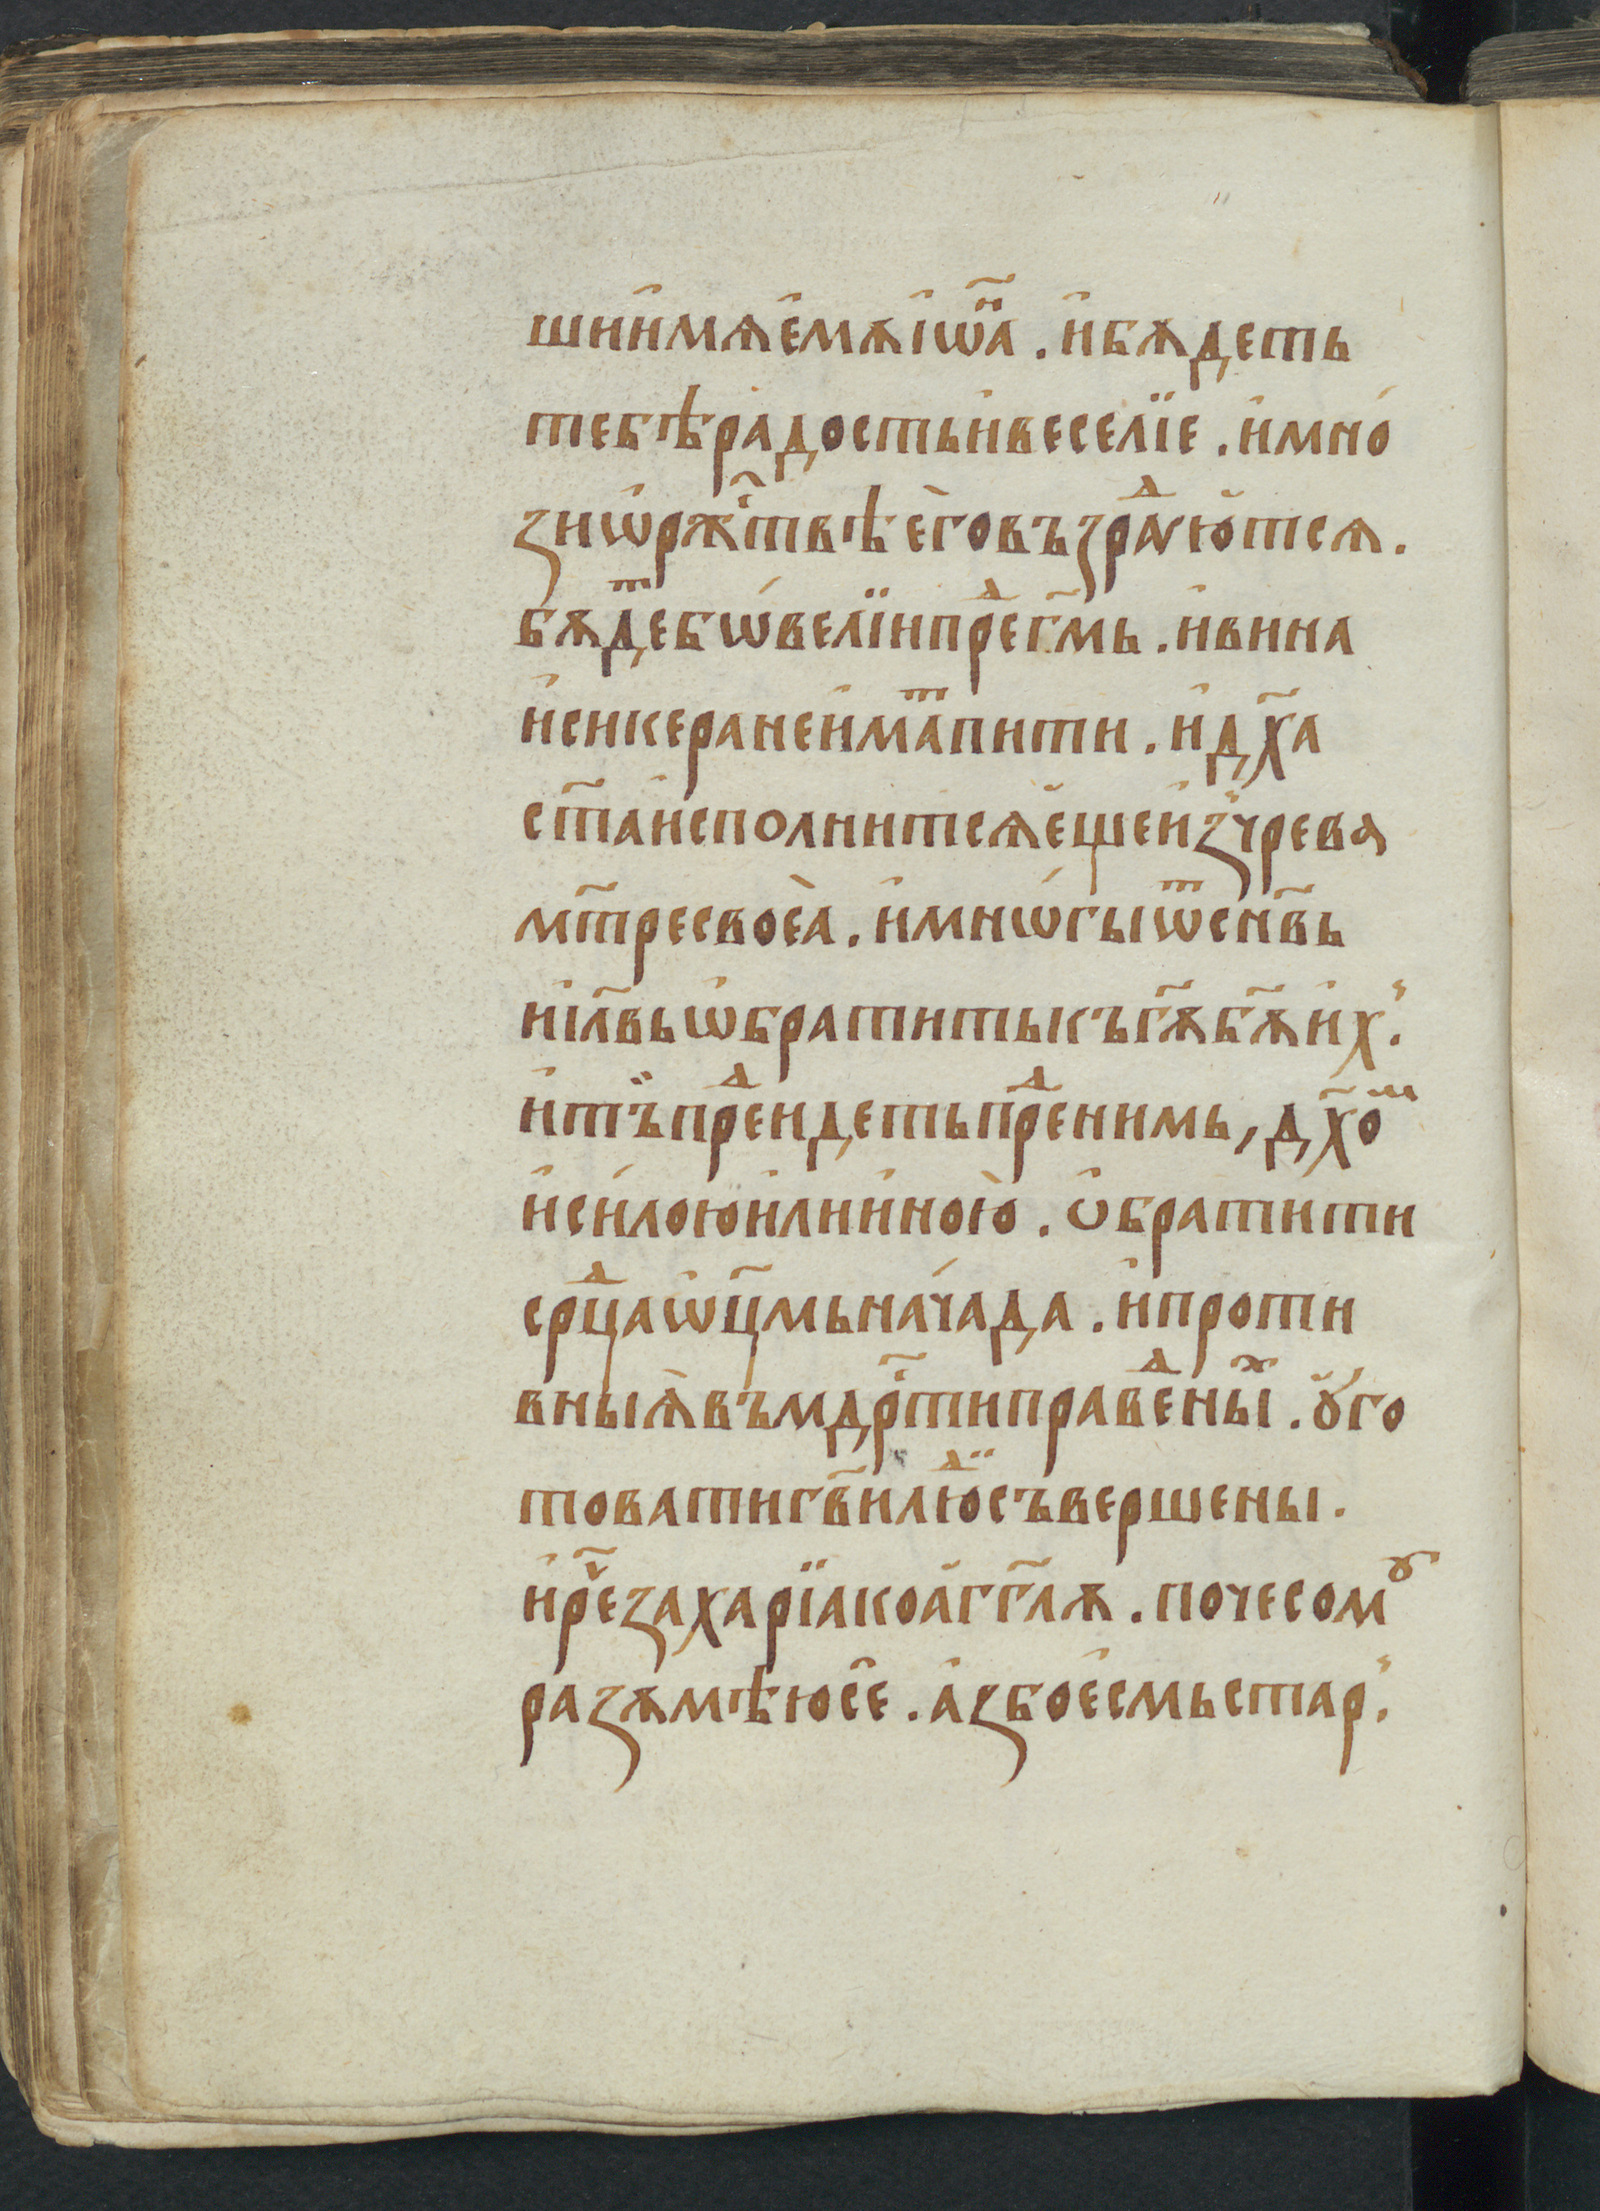 шиимѧ҆ємѫі҆ѡ҃на . и҆бѫдєть
тєбѣрадостьи҆вєсєлїє . и҆мно́
зиѡ҆рж҃ствѣє҆говъзрⷣаꙋю҆тсѧ .
бѫдⷮєбѡ́вєлїипрⷣєг҃мь . и҆вина
и҆сикєранєи҆маⷮпити . и҆дх҃а
ст҃аи҆сполнитсѧє҆щєи҆зчрєва
мт҃рєсвоєѧ̀ . и҆мнѡ́гыѿсн҃вь
иі҆л҃вьѡ҆братитькъгѫ҃бѫ҃и҆х .
и҆тъ̈прⷣєидєтьпрⷣєнимь , дх҃оⷨ
и҆си́лоюи҆лии҆ною̀ . ѡ҆брати́ти
срⷣцаѡ҆ц҃мьна́чада . и҆проти
вныѧ̀въмдрⷭ҇типравⷣєныⷯ . ꙋ҆го
товатигв҃илюⷣ̈съвєршєны .
и҆рⷱ҇єзахарїакоа҆гг҃лѫ . почєсомꙋ
разѫмѣюсє̀ . а҆збоє҆смьстар .